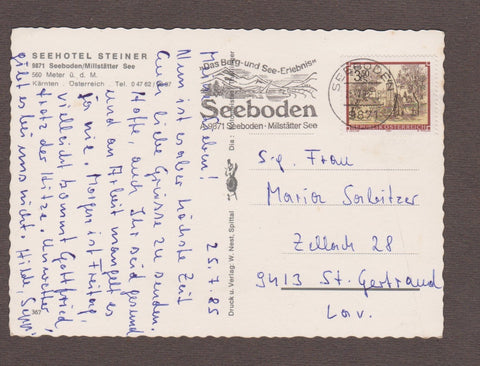 SEEHOTEL STEINER
9871 Seeboden/Millstätter See
560 Meter ü. d. M.
Kärnten . Österreich Tel. 0 47 62 /
"Das Berg- und See-Erlebnis"
Seeboden
A-9871 Seeboden - Millstätter See
SEEBODEN
9871
REPUBLIK ÖSTERREICH
25.7.85
Meine Lieben!
Nun ist es aber höchste Zeit
Euch liebe Grüsse zu senden.
Hoffe, auch Ihr seid gesund
und an Arbeit mangelt es
ja nie. Morgen ist Freitag,
vielleicht kommt Gottfried,
trotz der Hitze. Unwetter
gibt es bei uns nicht. Hilde, Sepp
Druck u. Verlag: W. Nest, Spittal
367
Sg. Frau
Maria
Zellach 28
9413 St. Gertraud
Lav.